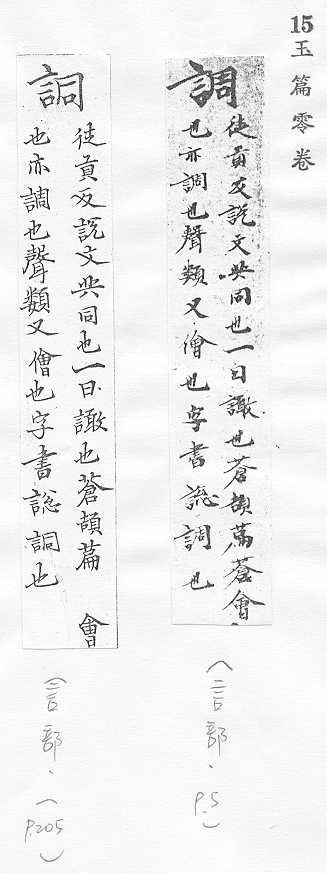 15玉篇零卷
調
徒貢反說文共同也一曰譀也蒼頡篇蒼會
也亦調也聲類又儈也字書諗調也
(言部、P.5)
詷
徒貢反說文共同也一曰譀也蒼頡篇 會
也亦調也聲類又儈也字書諗詷也
(言部、(P.205)